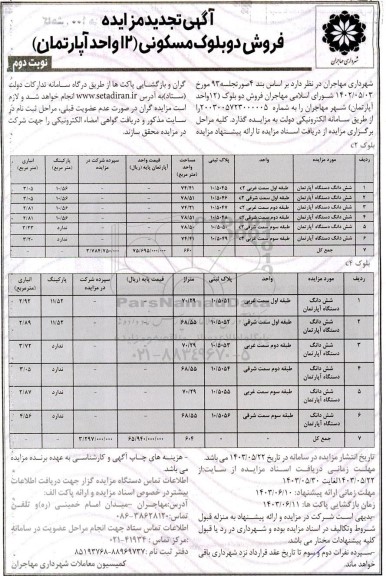 آگهی تجدید مزایده
فروش دو بلوک مسکونی (۱۲ واحد آپارتمان)
نوبت دوم
شهرداری مهاجران
شهرداری مهاجران در نظر دارد بر اساس بند ۴ صورتجلسه ۹۳ مورخ
۱۴۰۲/۰۵/۰۳ شورای اسلامی مهاجران فروش دو بلوک (۱۲ واحد
آپارتمان) شهر مهاجران را به شماره
از طریق سامانه الکترونیکی دولت به مزایده گذارد. کلیه مراحل
برگزاری مزایده از دریافت اسناد مزایده تا ارائه پیشنهاد مزایده
گران و بازگشایی پاکت ها از طریق درگاه سامانه تدارکات دولت
(ستاد) به آدرس www.setadiran.ir انجام خواهد شد و لازم
است مزایده گران در صورت عدم عضویت قبلی، مراحل ثبت نام در
سایت مذکور و دریافت گواهی امضاء الکترونیکی را جهت شرکت
در مزایده محقق سازند.
بلوک c۲
ردیف مورد مزایده واحد پلاک ثبتی مساحت (متر مربع) قیمت واحد آپارتمان پایه (ریال) سپرده شرکت در مزایده پارکینگ (متر مربع) انباری (متر مربع)
۱ شش دانگ دستگاه آپارتمان طبقه اول سمت غربی c۲
۲ شش دانگ دستگاه آپارتمان طبقه اول سمت شرقی c۲
۳ شش دانگ دستگاه آپارتمان طبقه دوم سمت غربی c۲
۴ شش دانگ دستگاه آپارتمان طبقه دوم سمت شرقی c۲
۵ شش دانگ دستگاه آپارتمان طبقه سوم سمت ندارد
۶ شش دانگ دستگاه آپارتمان طبقه سوم سمت ندارد
۷ جمع کل
بلوک c۴
ردیف مورد مزایده واحد پلاک ثبتی متراژ قیمت پایه (ریال) سپرده شرکت در مزایده پارکینگ انباری (متر مربع)
۱ شش دانگ دستگاه آپارتمان طبقه اول سمت غربی ۱۰/۵۰۵۱ ۷۰/۲۹ - - ۱۱/۵۲ ۲/۹۲
۲ شش دانگ دستگاه آپارتمان طبقه اول سمت شرقی ۱۰/۵۰۵۲ ۶۸/۵۵ - - ۱۱/۵۲ ۲/۸۹
۳ شش دانگ دستگاه آپارتمان طبقه دوم سمت غربی ۱۰/۵۰۵۳ ۷۰/۲۹ - - ندارد ۳/۷۲
۴ شش دانگ دستگاه آپارتمان طبقه دوم سمت شرقی ۱۰/۵۰۵۴ ۶۸/۵۵ - - ندارد ۳/۰۵
۵ شش دانگ دستگاه آپارتمان طبقه سوم سمت غربی ۱۰/۵۰۵۵ ۷۰/۲۹ - - ندارد ۲/۸۷
۶ شش دانگ دستگاه آپارتمان طبقه سوم سمت شرقی ۱۰/۵۰۵۶ ۶۸/۵۵ - - ندارد ۴/۵۶
۷ جمع کل - ۶۰۴ ۶۵/۹۴۰/۰۰۰/۰۰۰ ۳/۲۹۷/۰۰۰/۰۰۰
تاریخ انتشار مزایده در سامانه در تاریخ ۱۴۰۳/۰۵/۲۲ می باشد.
مهلت زمانی دریافت اسناد مزایده از سایت: از
۱۴۰۳/۰۵/۲۲ لغایت ۱۴۰۳/۰۵/۳۰
مهلت زمانی ارائه پیشنهاد: ۱۴۰۳/۰۶/۱۰
زمان بازگشایی پاکت ها: ۱۴۰۳/۰۶/۱۱
-بدیهی است شرکت در مزایده و ارائه پیشنهاد به منزله قبول
شروط و تکالیف در اسناد مزایده بوده و شهرداری در رد یا قبول
کلیه پیشنهادات مختار می باشد.
-سپرده نفرات دوم و سوم تا تاریخ عقد قرارداد نزد شهرداری باقی
خواهد ماند.
- هزینه های چاپ آگهی و کارشناسی به عهده برنده مزایده
می باشد.
اطلاعات تماس دستگاه مزایده گزار جهت دریافت اطلاعات
بیشتر در خصوص اسناد مزایده و ارائه پاکت الف:
آدرس: مهاجران- میدان امام خمینی (ره) و تلفن
تماس: ۳۸۶۲۸۱۲۰-۰۸۶
اطلاعات تماس ستاد جهت انجام مراحل عضویت در سامانه
مرکز تماس: ۴۱۹۳۴-۰۲۱
دفتر ثبت نام: ۸۸۹۶۹۷۳۷-۸۵۱۹۳۷۶۸
کمیسیون معاملات شهرداری مهاجران